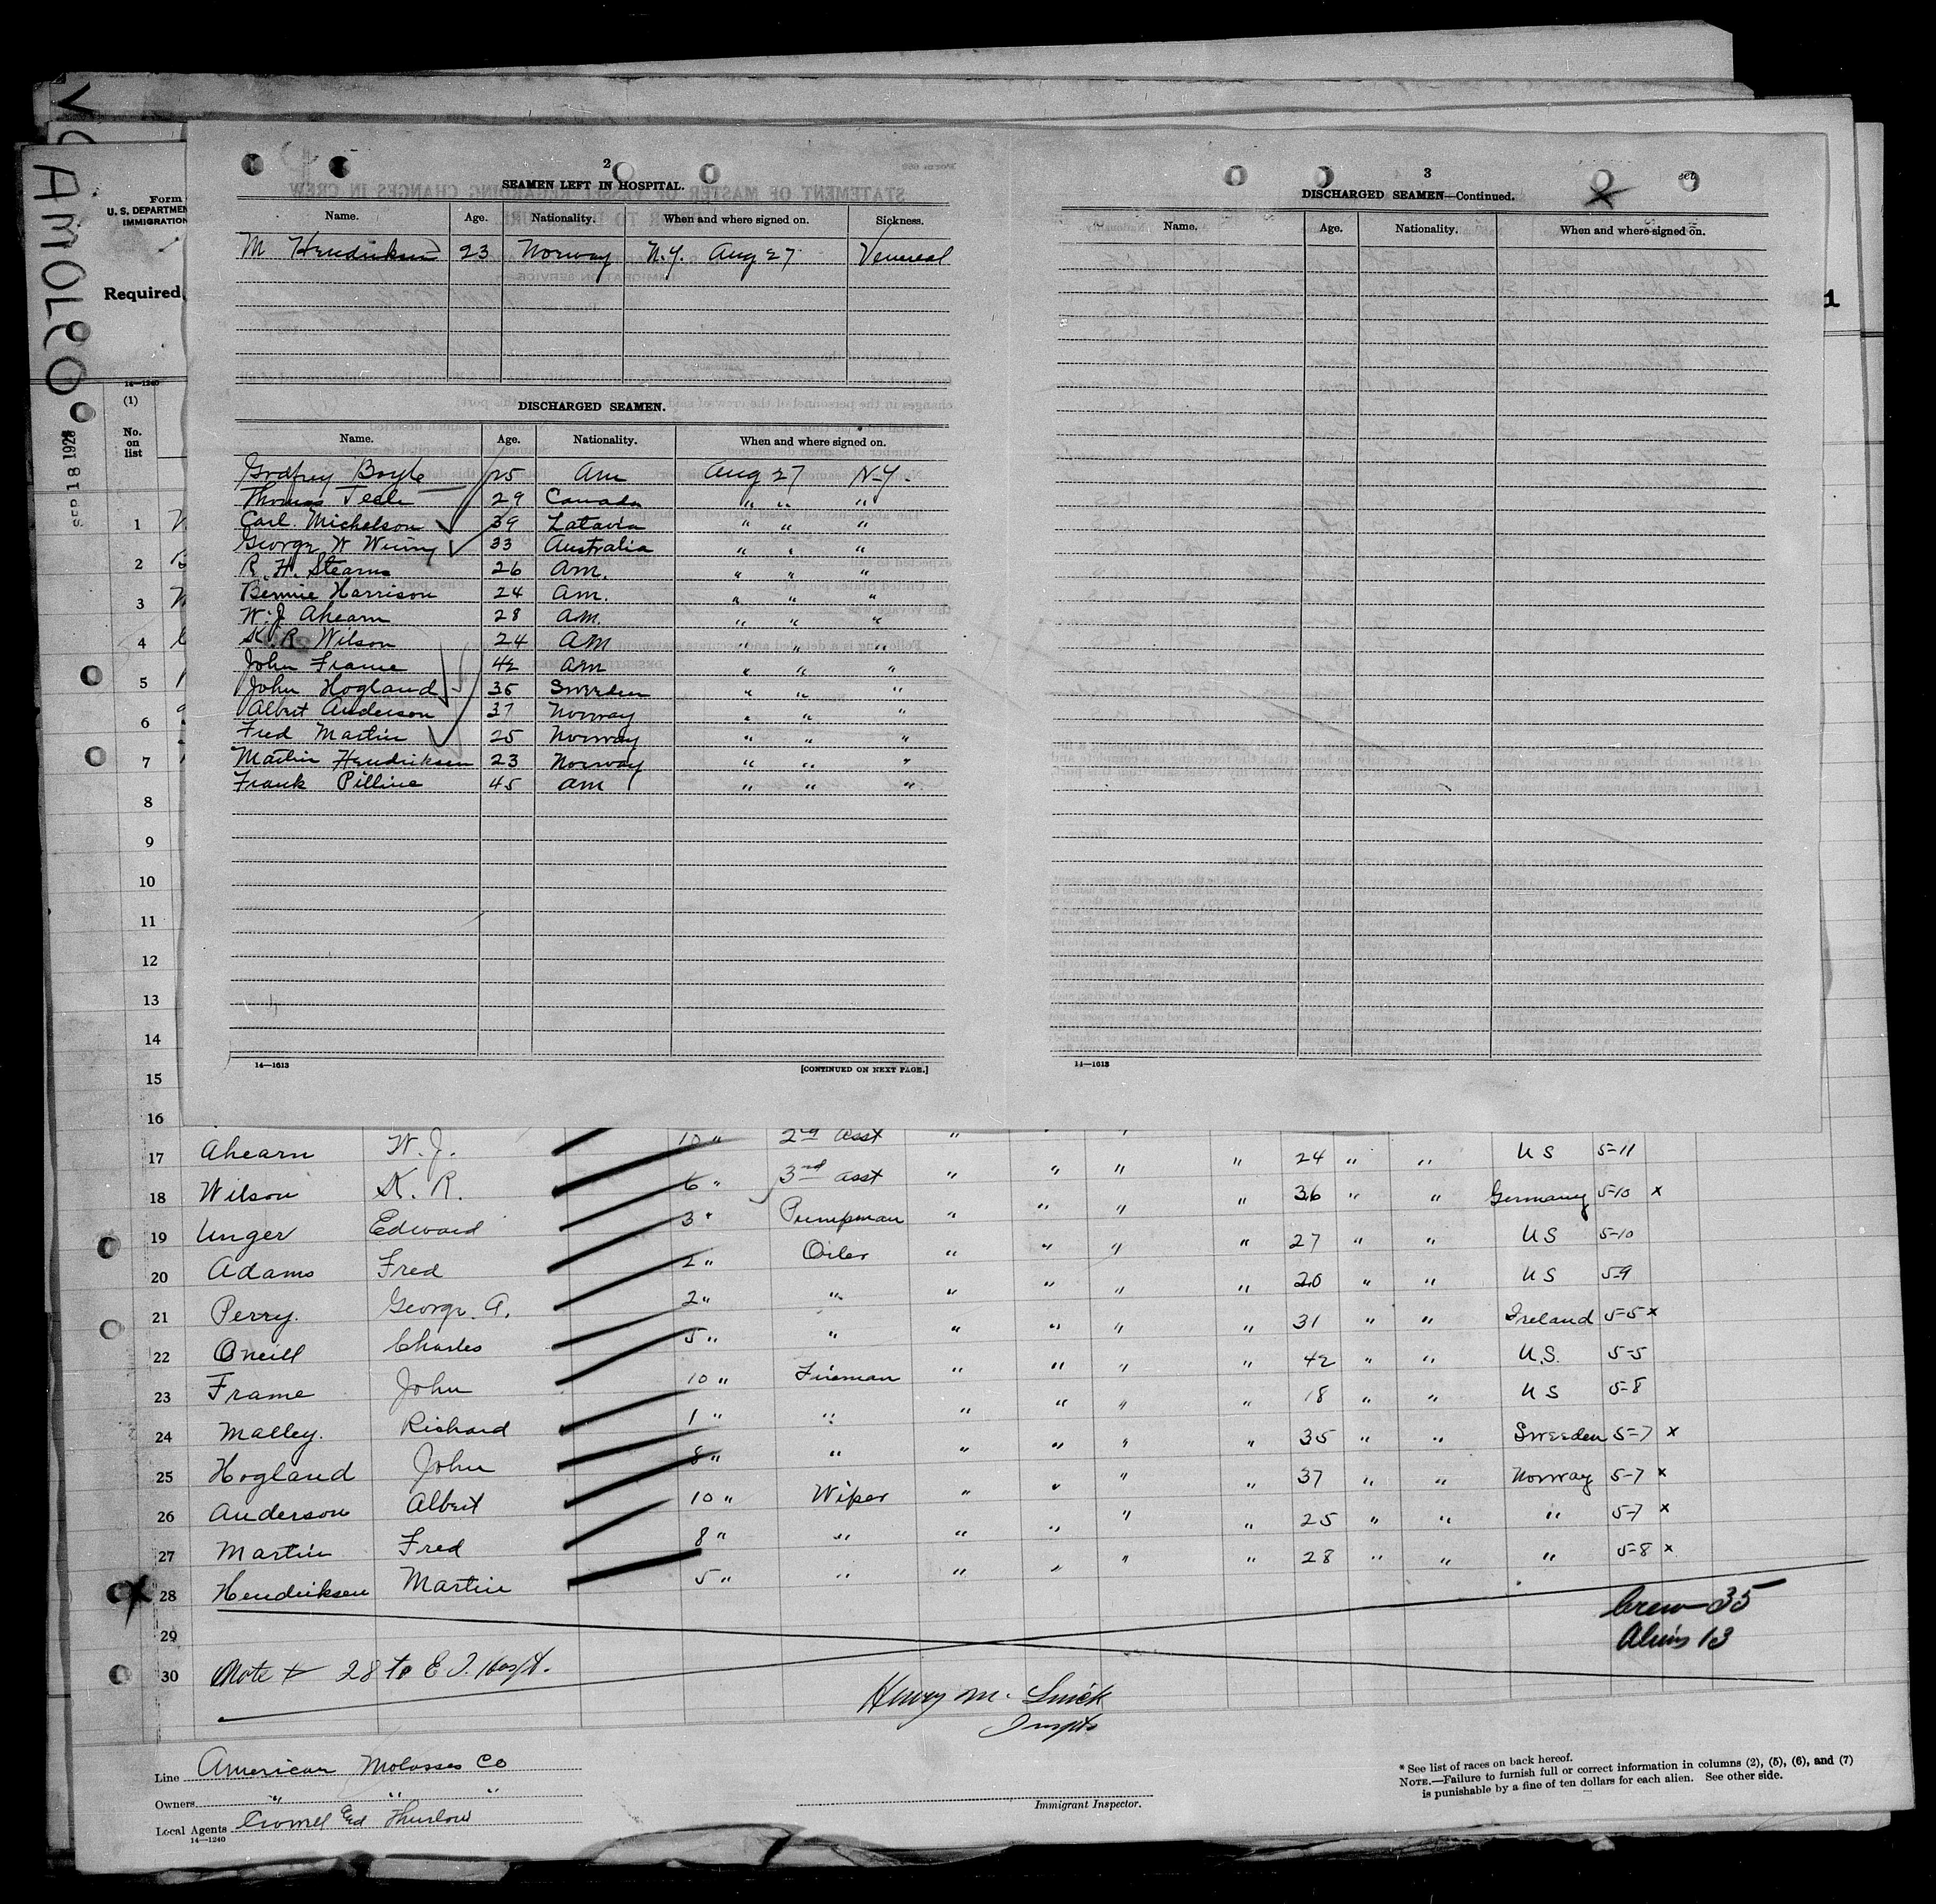 AMOLCO
SEP 18 1928
Form
U. S. DEPARTMEN
IMMIGRATION
Required
14—1240
(1)
No.
on
list
1
2
SEAMEN LEFT IN HOSPITAL.
Name. Age. Nationality. When and where signed on. Sickness.
M Hendriksen 23 Norway N.Y. Aug 27 Venereal
DISCHARGED SEAMEN.
Name. Age. Nationality. When and where signed on.
Godfrey Boyle 25 Am Aug 27 N-Y.
Thomas 29 Canada " " "
Carl Michelson 39 Latavia " " "
George W 33 Australia " " "
R. H. Stearns 26 Am. " " "
Bennie Harrison 24 Am. " " "
W. J. Ahearn 28 Am. " " "
K. R. Wilson 24 Am " " "
John Frame 42 Am " " "
John Hogland 35 Sweeden " " "
Albert Anderson 37 Norway " " "
Fred Martin 25 Norway " " "
Martin Hendriksen 23 Norway " " "
Frank Pilline 45 Am " " "
14—1613 [CONTINUED ON NEXT PAGE.]
3
DISCHARGED SEAMEN—Continued.
Name. Age. Nationality. When and where signed on.
14—1613
1
1
2
3
4
5
6
7
8
9
10
11
12
13
14
15
16
17 Ahearn W. J. 10 " 2nd Asst " " " " 24 " " U S 5-11
18 Wilson K. R. 6 " 3rd Asst " " " " 36 " " Germany 5-10 x
19 Unger Edward 3 " Pumpman " " " " 27 " " U S 5-10
20 Adams Fred 2 " Oiler " " " " 20 " " U S 5-9
21 Perry. George. A. 2 " " " " " " 31 " " Ireland 5-5 x
22 Oneill Charles 5 " " " " " " 42 " " U.S. 5-5
23 Frame John 10 " Fireman " " " " 18 " " U S 5-8
24 Malley. Richard 1 " " " " " " 35 " " Sweeden 5-7 x
25 Hogland John 8 " " " " " " 37 " " Norway 5-7 x
26 Anderson Albert 10 " Wiper " " " " 25 " " " 5-7 x
27 Martin Fred 8 " " " " " " 28 " " " 5-8 x
28 Hendriksen Martin 5 " " " "
29
Crew 35
Aliens 13
30 Note # 28 to E. I. Hospt.
Henry M.
Inspts
Line American Molasses Co
Owners " " "
Local Agents Ed Thurlow
14—1240
Immigrant Inspector.
* See list of races on back hereof.
NOTE.—Failure to furnish full or correct information in columns (2), (5), (6), and (7)
is punishable by a fine of ten dollars for each alien. See other side.